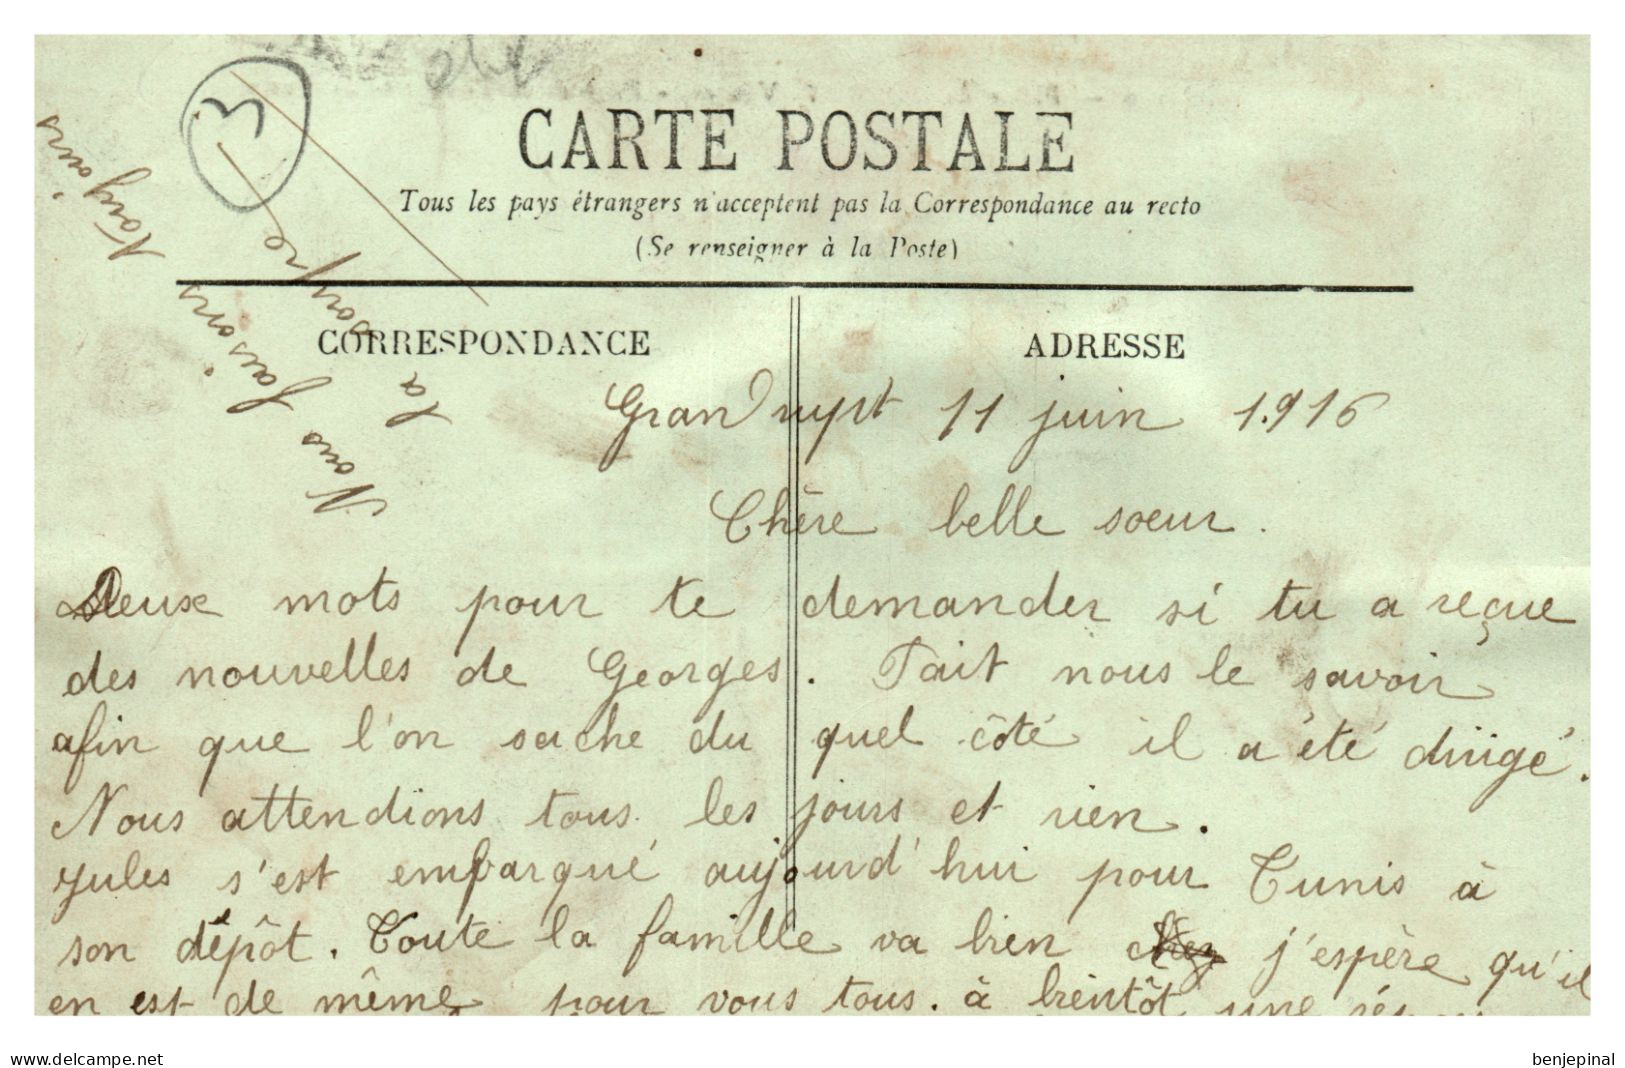 3
CARTE POSTALE
Tous les pays étrangers n'acceptent pas la Correspondance au recto
(Se renseigner à la Poste)
CORRESPONDANCE
ADRESSE
Nous faisons toujours
la
Grandrupt 11 juin 1.916
Chère belle soeur.
Deux mots pour te demander si tu a reçue
des nouvelles de Georges. Fait nous le savoir
afin que l'on sache du quel côté il a été dirigé.
Nous attendions tous les jours et rien.
Jules s'est embarqué aujourd'hui pour Tunis à
son dépôt. Toute la famille va bien j'espère qu'il
en est de même pour vous tous. à bientôt une
www.delcampe.net
benjepinal